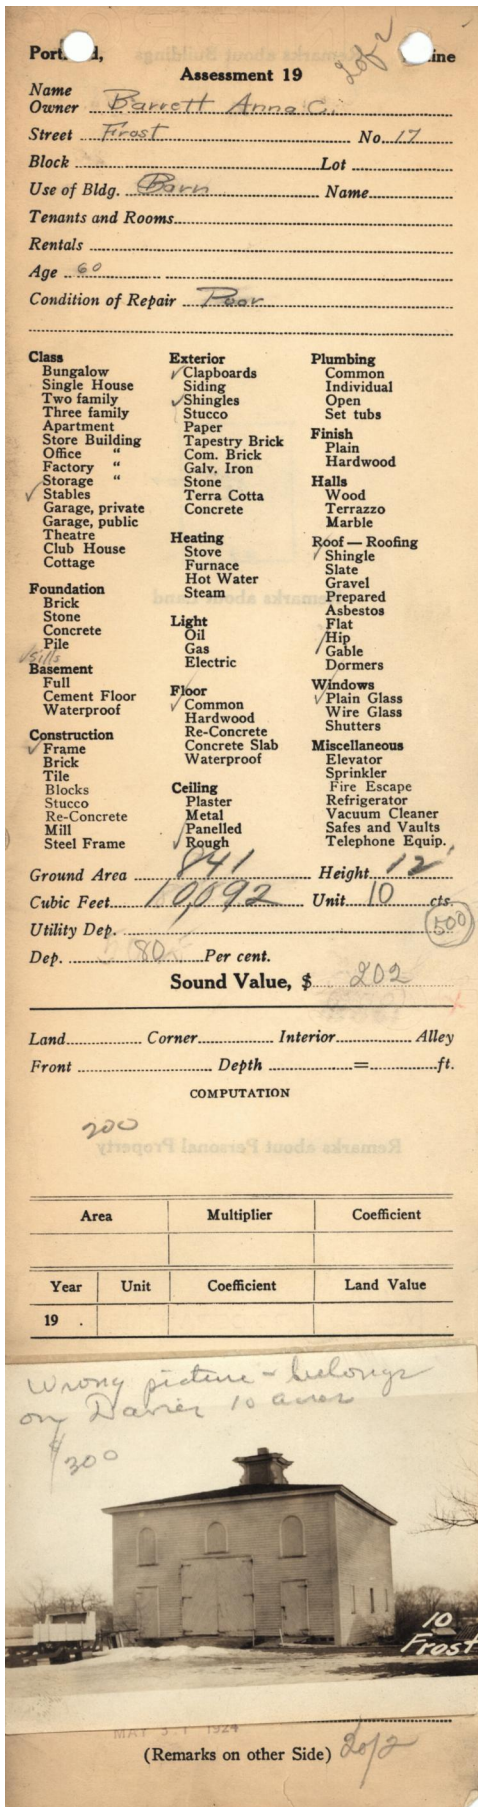 2 of 2
Portland, Maine
Assessment 19
Name
Owner Barrett Anna C.
Street Frost No. 17
Block Lot
Use of Bldg. Barn Name
Tenants and Rooms
Rentals
Age 60
Condition of Repair Poor
Class
Bungalow
Single House
Two family
Three family
Apartment
Store Building
Office "
Factory "
Storage "
✓ Stables
Garage, private
Garage, public
Theatre
Club House
Cottage
Foundation
Brick
Stone
Concrete
Pile
✓ Sills
Basement
Full
Cement Floor
Waterproof
Construction
✓ Frame
Brick
Tile
Blocks
Stucco
Re-Concrete
Mill
Steel Frame
Exterior
✓ Clapboards
Siding
✓ Shingles
Stucco
Paper
Tapestry Brick
Com. Brick
Galv. Iron
Stone
Terra Cotta
Concrete
Heating
Stove
Furnace
Hot Water
Steam
Light
Oil
Gas
Electric
Floor
✓ Common
Hardwood
Re-Concrete
Concrete Slab
Waterproof
Ceiling
Plaster
Metal
Panelled
✓ Rough
Plumbing
Common
Individual
Open
Set tubs
Finish
Plain
Hardwood
Halls
Wood
Terrazzo
Marble
Roof — Roofing
✓ Shingle
Slate
Gravel
Prepared
Asbestos
Flat
✓ Hip
Gable
Dormers
Windows
✓ Plain Glass
Wire Glass
Shutters
Miscellaneous
Elevator
Sprinkler
Fire Escape
Refrigerator
Vacuum Cleaner
Safes and Vaults
Telephone Equip.
Ground Area 841 Height 12'
Cubic Feet 10,092 Unit 10 cts.
Utility Dep. 500
Dep. 80 Per cent.
Sound Value, $ 202
Land Corner Interior Alley
Front Depth = ft.
COMPUTATION
200
Remarks about Personal Property
Area Multiplier Coefficient
Year Unit Coefficient Land Value
19 .
Wrong picture - belongs
on Davies 10 acres
$300
10
Frost
MAY 31 1924
(Remarks on other Side) 2 of 2